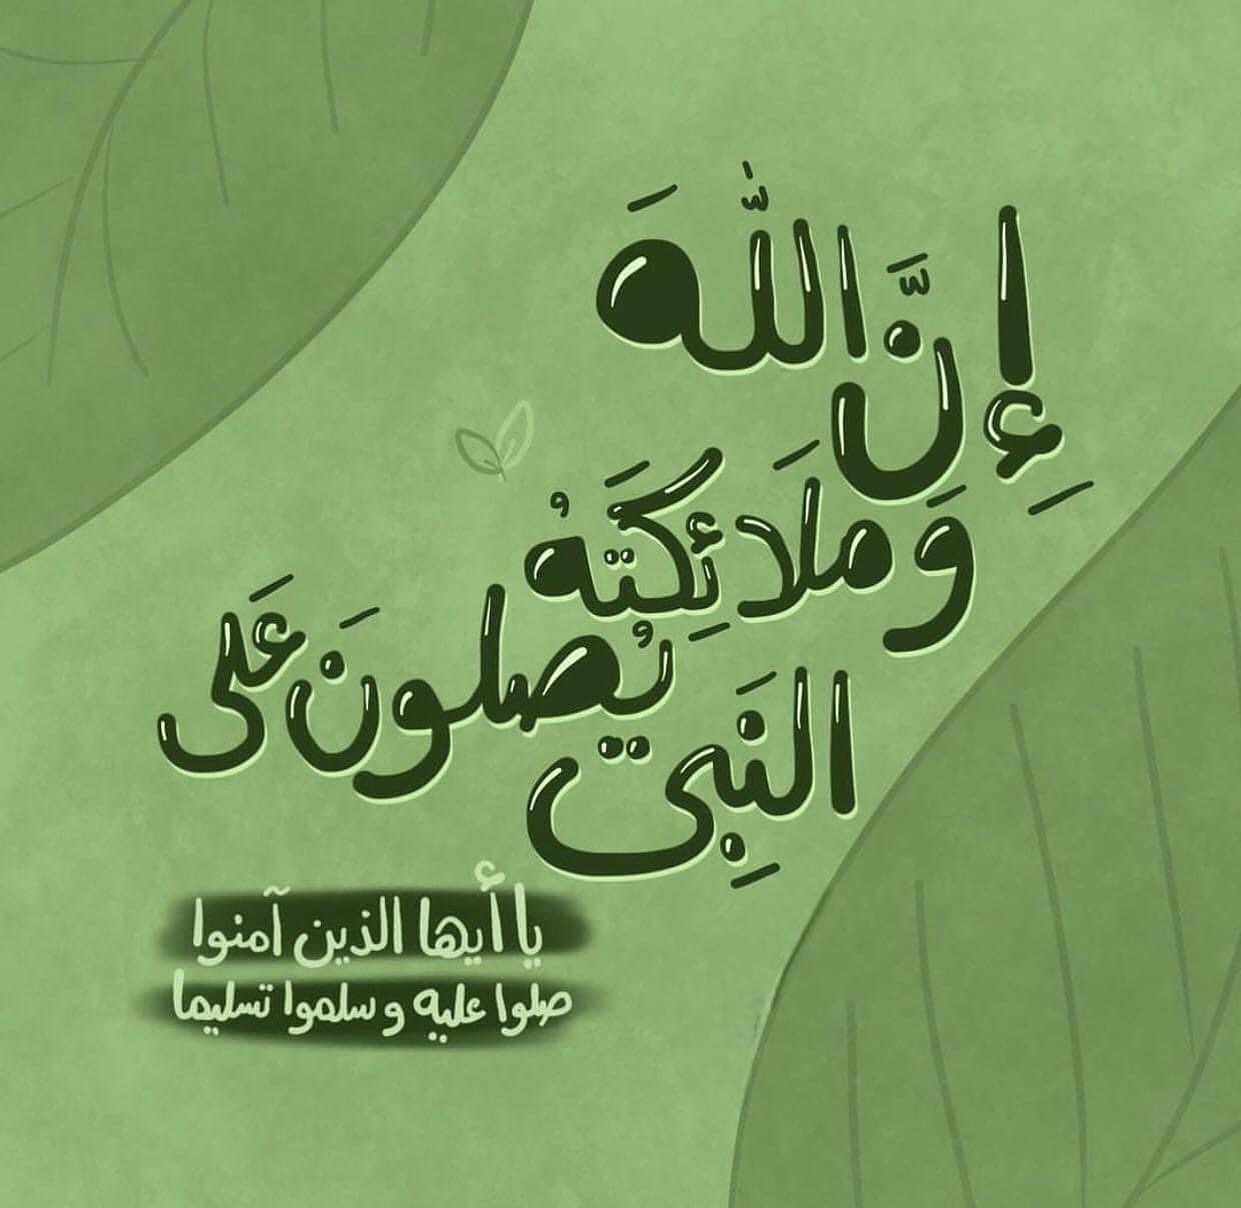 إِنَّ اللّٰهَ
وَمَلَائِكَتَهُ
يُصلونَ عَلى
النَبِي
يا أيها الذين آمنوا
صلوا عليه و سلموا تسليما